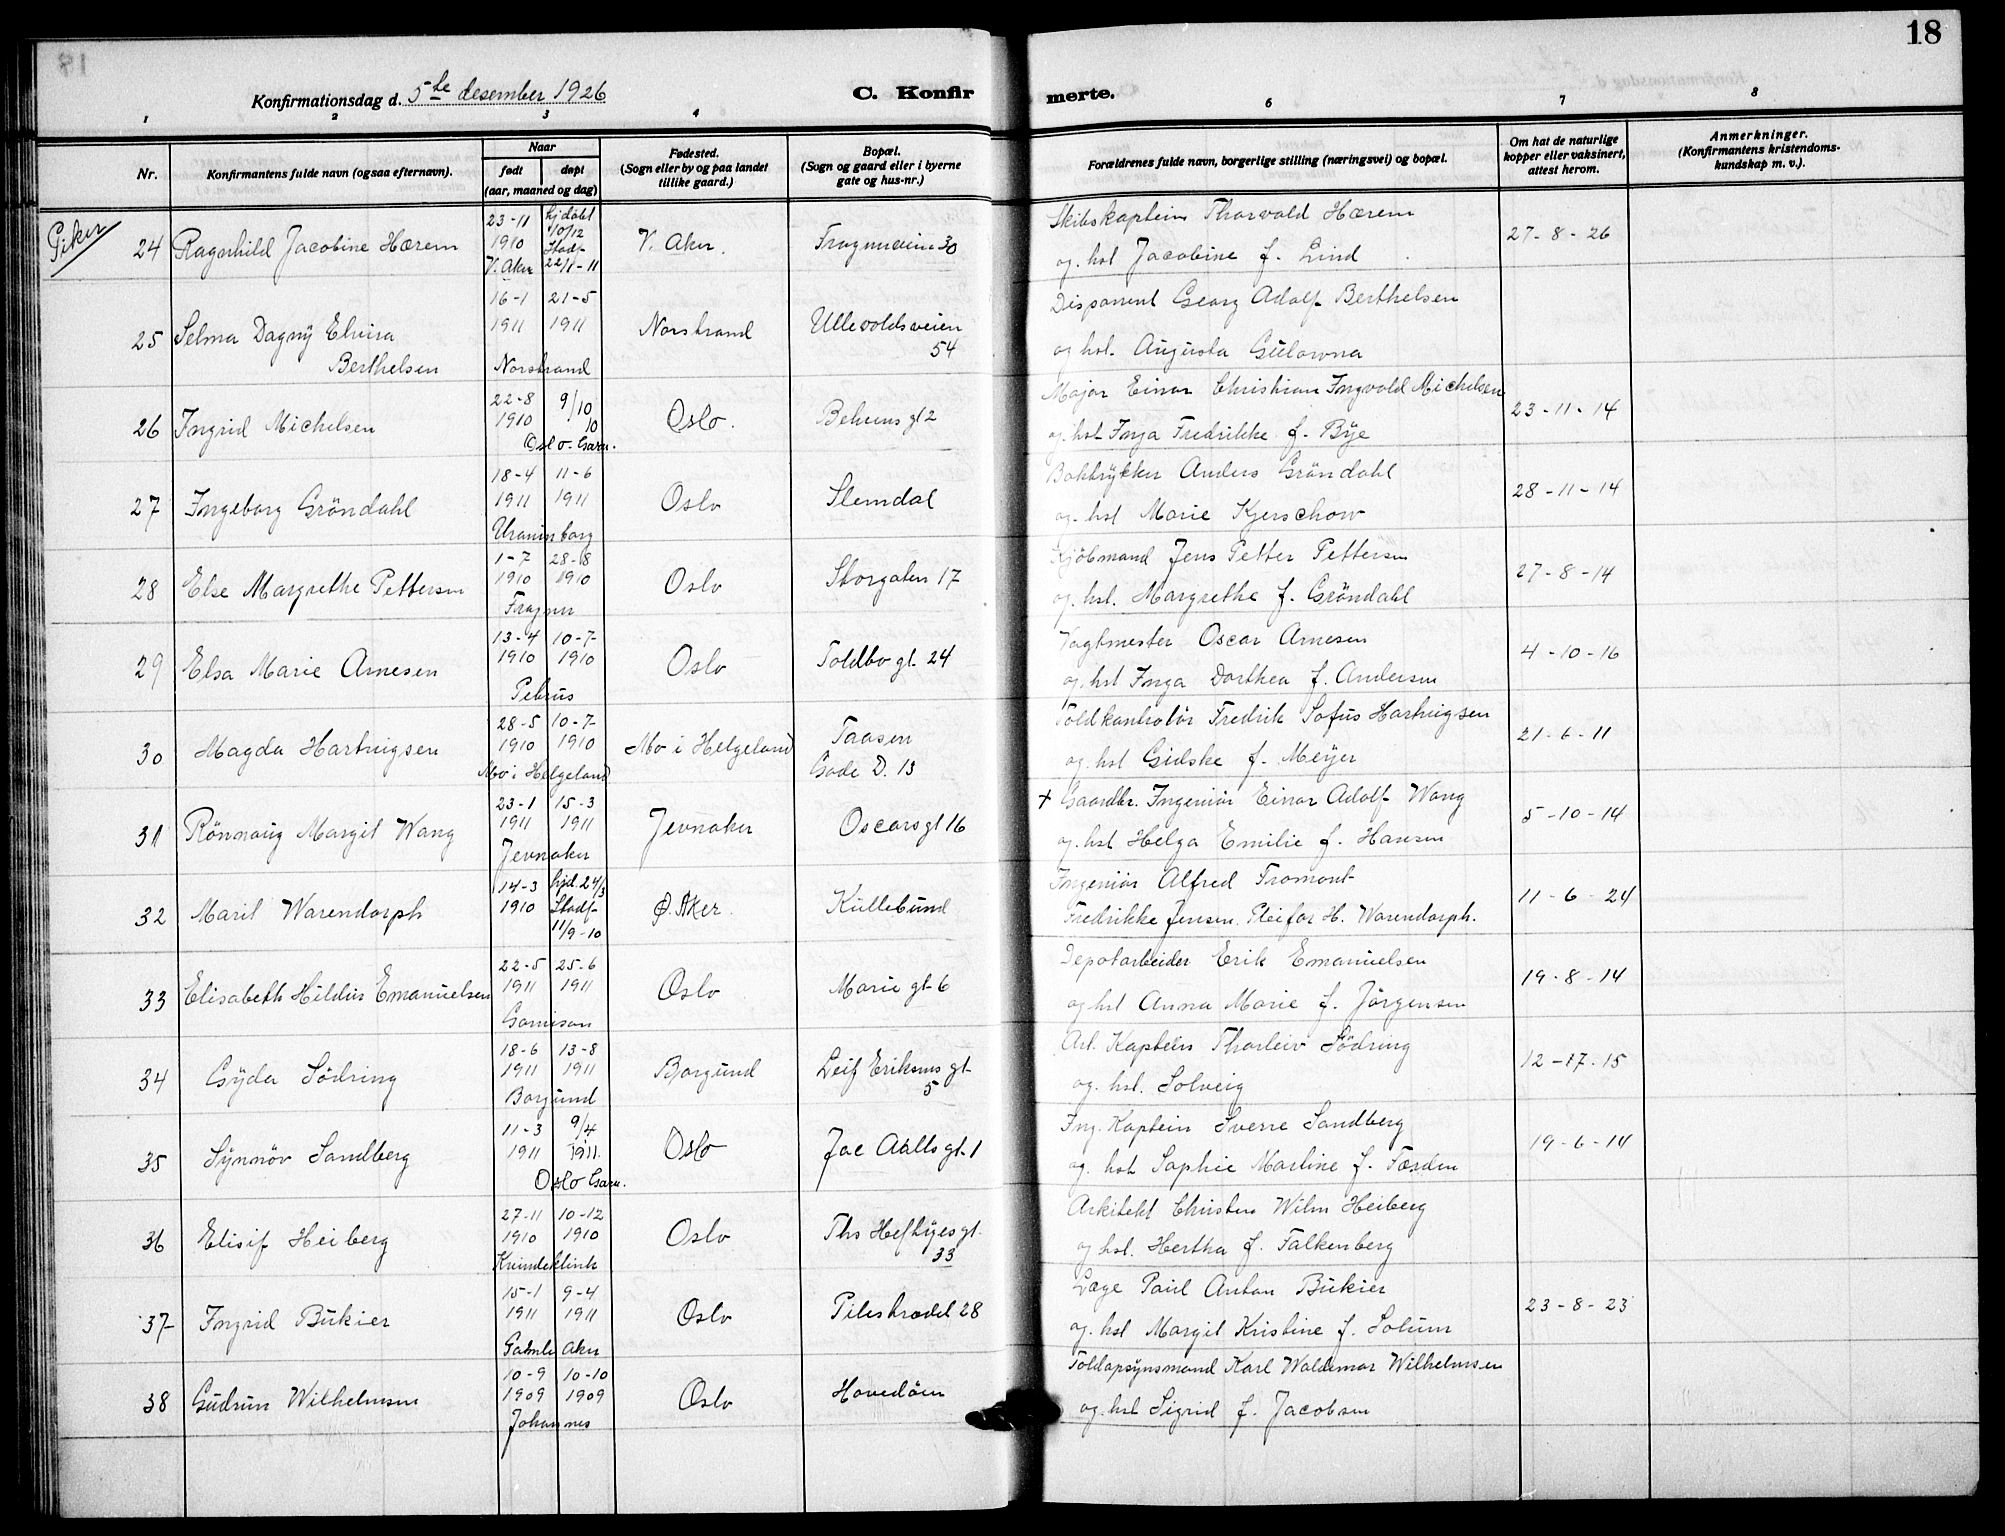 18
Konfirmationsdag d. 5te desember 1926
C. Konfirmerte.
1 2 3 4 6 7 8
Nr.
Konfirmantens fulde navn (ogsaa efternavn).
Naar
født døpt
(aar, maaned og dag)
Fødested.
(Sogn eller by og paa landet
tillike gaard.)
Bopæl.
(Sogn og gaard eller i byerne
gate og hus-nr.)
Forældrenes fulde navn, borgerlige stilling (næringsvei) og bopæl.
Om hat de naturlige
kopper eller vaksinert,
attest herom.
Anmerkninger.
(Konfirmantens kristendoms-
kundskap m. v.).
Piker
24 Ragnhild Jacobine Hærem 23-11 1910 hjdöbt 10/12 Stadf. 22/1-11 V. Aker V. Aker. Frognerveien 30 Skibskaptein Thorvald Hærem 27-8-26
og hst Jacobine f. Lind
25 Selma Dagny Elvira Berthelsen 16-1 1911 21-5 1911 Norstrand Norstrand Ullevoldsveien 54 Disponent Georg Adolf Berthelsen
og hst. Augusta Gulowna
26 Ingrid Michelsen 22-8 1910 9/10 10 Oslo Garn. Oslo. Behrens gt 2 Major Einar Christian Ingvold Michelsen 23-11-14
og hst Inga Fredrikke f. Bye
27 Ingeborg Gröndahl 18-4 1911 11-6 1911 Uranienborg Oslo Slemdal Boktrykker Anders Gröndahl 28-11-14
og hst Marie Kjerschow
28 Else Margrethe Pettersen 1-7 1910 28-8 1910 Frogner Oslo Storgaten 17 Kjöbmand Jens Petter Pettersen 27-8-14
og hst. Margrethe f. Gröndahl
29 Elsa Marie Arnesen 13-4 1910 10-7 1910 Petrus Oslo Toldbo gt. 24 Vagtmester Oscar Arnesen 4-10-16
og hst Inga Dorthea f. Andersen
30 Magda Hartvigsen 28-5 1910 10-7 1910 Mo i Helgeland Mo i Helgeland Taasen Gade D. 13 Toldkontrolör Fredrik Sofus Hartvigsen 21-6-11
og hst Gidske f. Meyer
31 Rönnaug Margit Wang 23-1 1911 15-3 1911 Jevnaker Jevnaker Oscarsgt 16 + Gaardbr. Ingeniör Einar Adolf Wang 5-10-14
og hst Helga Emilie f. Hansen
32 Marit Warendorph 14-3 1910 hjd. 24/3 Stadf. 11/9-10 Ø. Aker. Kullebund Ingeniör Alfred Tromont 11-6-24
Fredrikke Jensen. Pleifar H. Warendorph.
33 Elisabeth Hildus Emanuelsen 22-5 1911 25-6 1911 Garnison Oslo Marie gt 6 Depotarbeider Erik Emanuelsen 19-8-14
og hst Anna Marie f. Jörgensen
34 Gyda Södring 18-6 1911 13-8 1911 Borgund Borgund Leif Eriksens gt 5 Art. Kaptein Thorleiv Södring 12-17-15
og hst. Solveig
35 Synnöv Sandberg 11-3 1911 9/4 1911. Oslo Garn. Oslo Jac Aalls gt. 1 Ing. Kaptein Sverre Sandberg 19-6-14
og hst Sophie Martine f. Færden
36 Elisif Heiberg 27-11 1910 10-12 1910 Kvindeklinik Oslo Ths Heftyes gt. 33 Arkitekt Christen Wilm Heiberg
og hst. Hertha f. Falkenberg
37 Ingrid Bukier 15-1 1911 9-4 1911 Gamle Aker Oslo Pilestrædet 28 Læge Paul Anton Bukier 23-8-23
og hst Margit Kristine f. Solum
38 Gudrun Wilhelmsen 10-9 1909 10-10 1909 Johannes Oslo Hovedöen Toldopsynsmand Karl Waldemar Wilhelmsen
og hst Sigrid f. Jacobsen